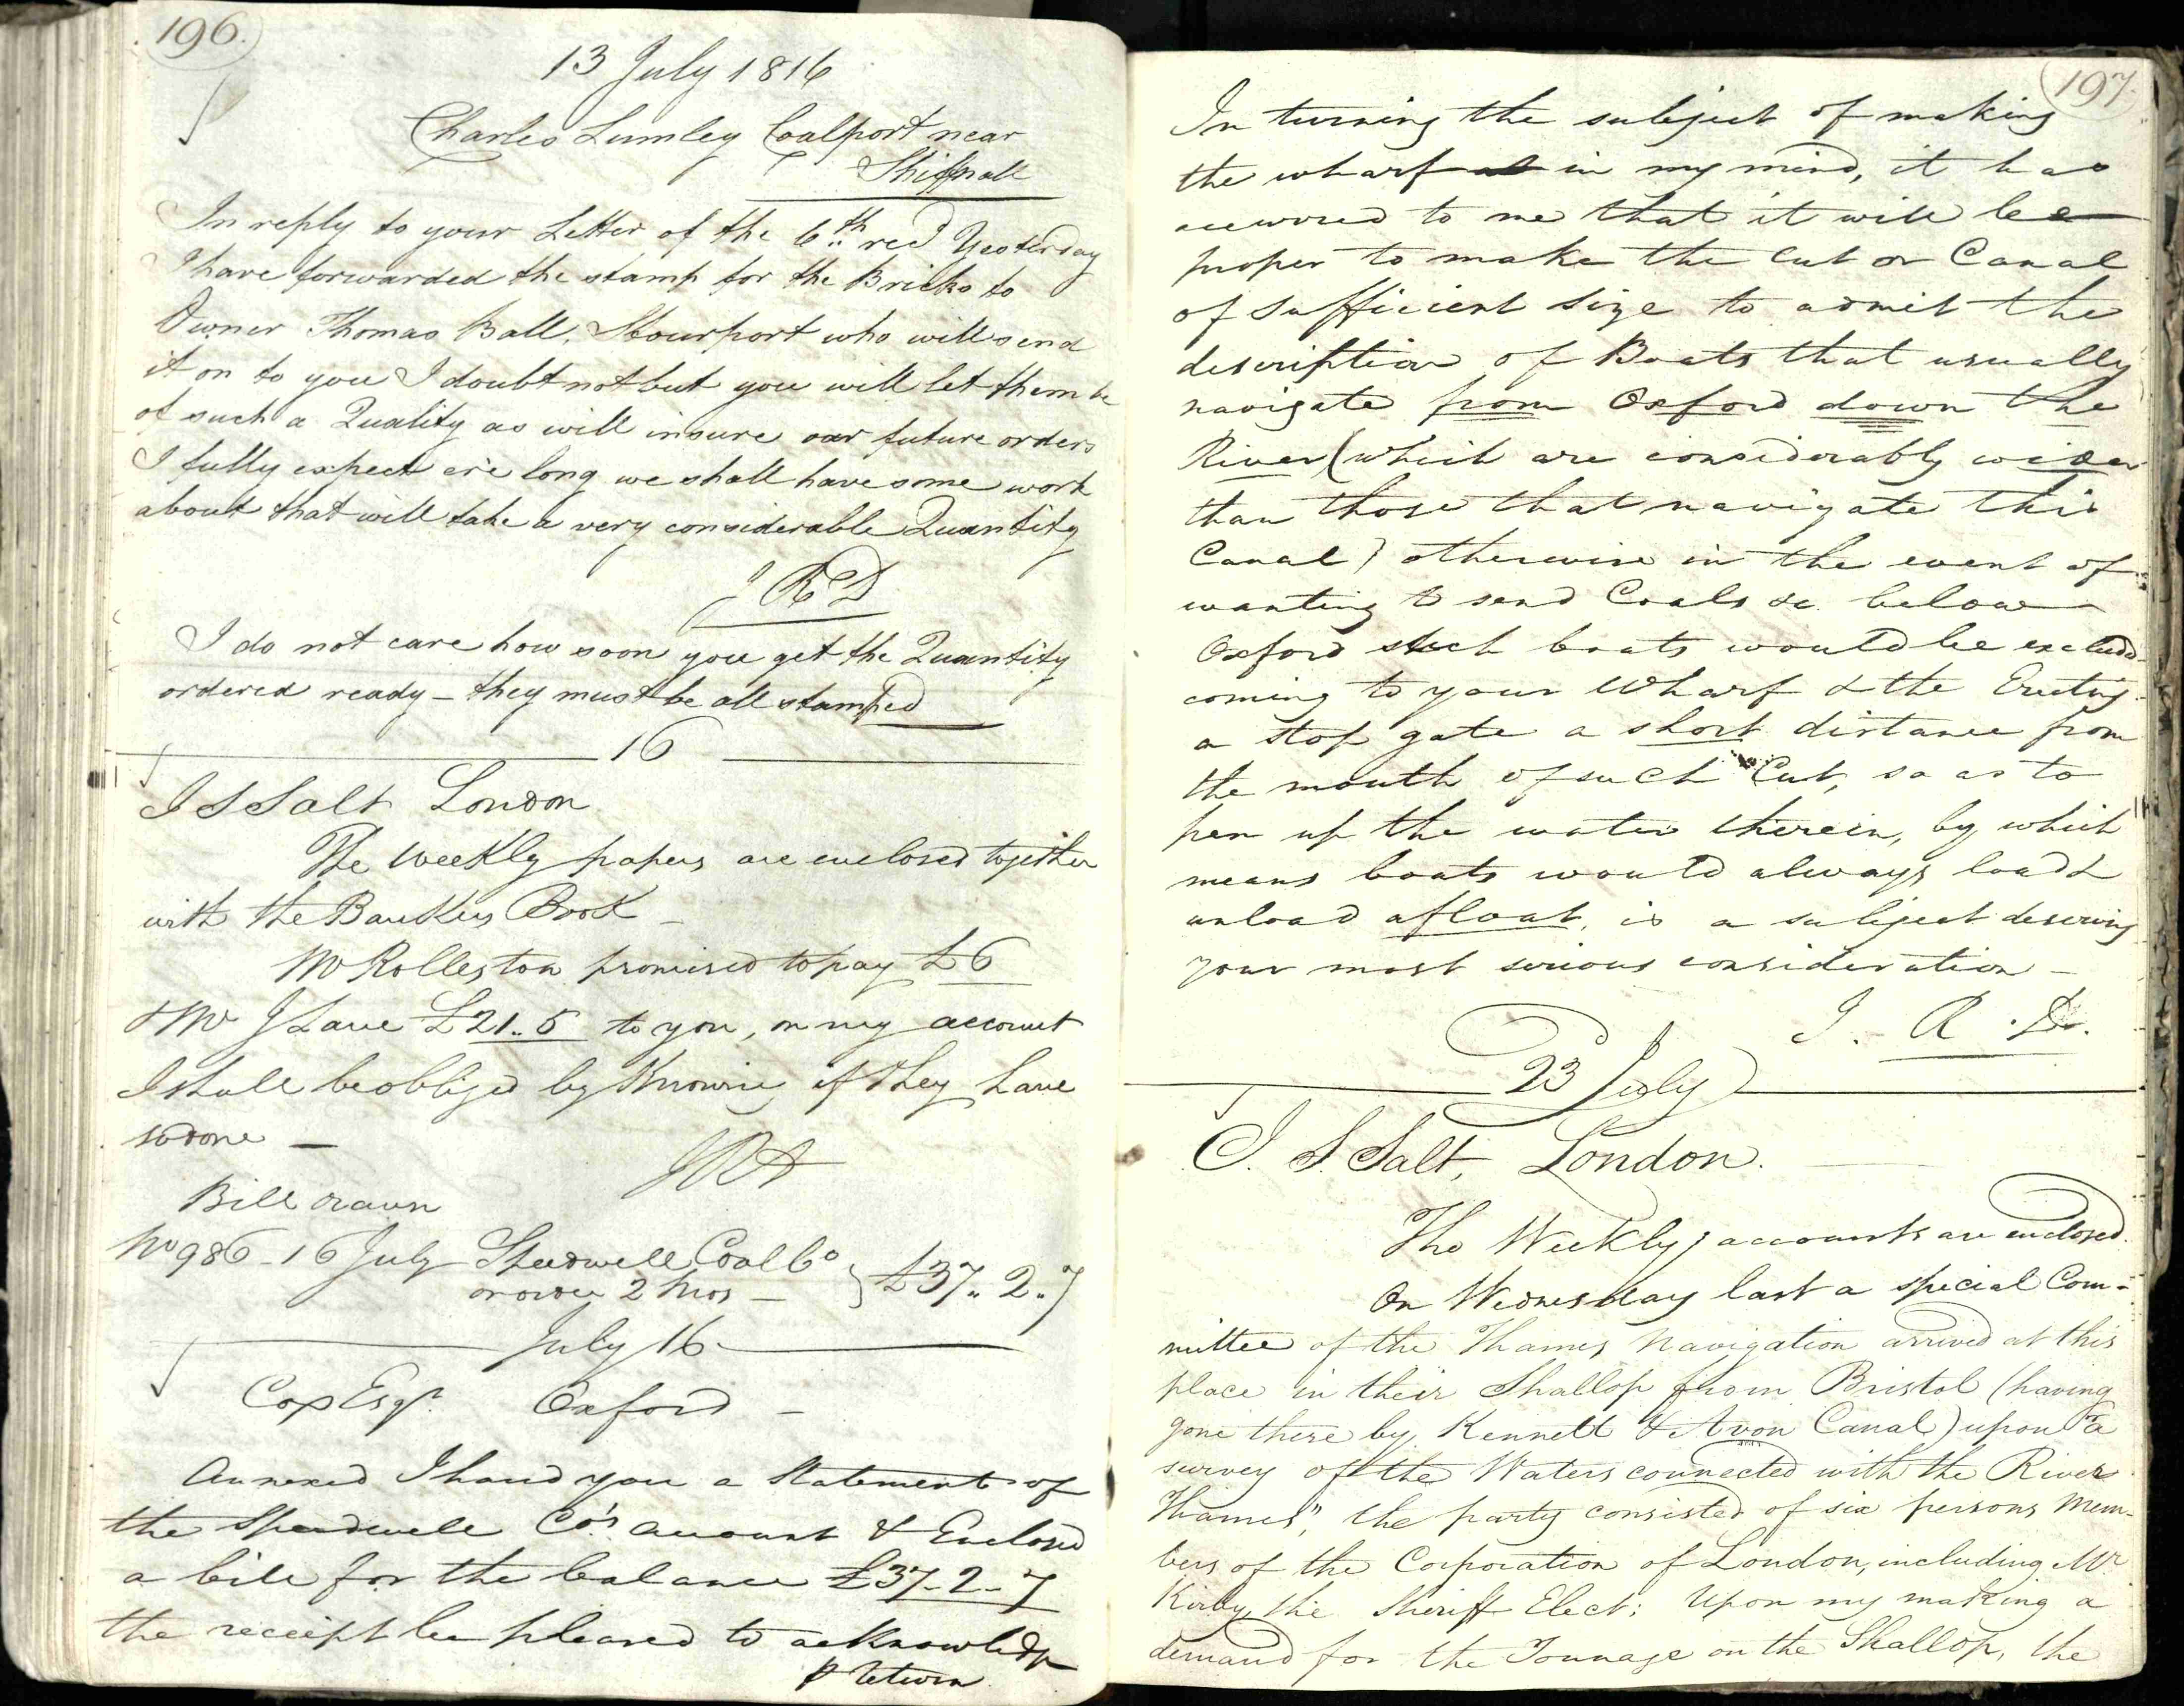 196.
13 July 1816
Charles Lumley Coalport near
Shiffnall
In reply to your Letter of the 6th recd Yesterday
I have forwarded the stamp for the Bricks to
Owner Thomas Ball, Stourport who will send
it on to you I doubt not but you will let them be
of such a Quality as will insure our future orders
I fully expect ere long we shall have some work
about that will take a very considerable Quantity
I R D
I do not care how soon you get the Quantity
ordered ready - they must be all stamped
16
J S Salt London
The Weekly papers are enclosed together
with the Bankers Book -
Mr Rolleston promised to pay £6
& Mr J Lane £21..5 to you, on my account
I shall be obliged by Knowing if they have
so done -
Bill drawn
No 986 - 16 July Speedwell Coal Co
or order 2 Mos - } £37.. 2..7
July 16
Cox Esqr. Oxford -
Annexed I hand you a Statement of
the Speedwell Co's account & Enclosed
a bill for the balance £37-2-7
the receipt be pleased to acknowledge
P return
197.
In turning the subject of making
the wharf in my mind, it has
occurred to me that it will be
proper to make the Cut or Canal
of sufficient size to admit the
description of Boats that usually
navigate from Oxford down the
River (which are considerably wider
than those that navigate this
Canal) otherwise in the event of
wanting to send Coals &c below
Oxford such boats would be exclud-
coming to your Wharf & the Erecting
a stop gate a short distance from
the mouth of such Cut, so as to
pen up the water therein, by which
means boats would always load &
unload afloat, is a subject deserving
your most serious consideration -
J. R. D.
23 July
J. S. Salt, London.
The Weekly accounts are enclosed.
On Wednesday last a special Com-
mittee of the Thames Navigation arrived at this
place in their Shallop from Bristol (having
gone there by Kennett & Avon Canal) upon "a
survey of the Waters connected with the River
Thames", the party consisted of six persons Mem-
bers of the Corporation of London, including Mr
Kirby, the Sheriff Elect; Upon my making a
demand for the Tonnage on the Shallop, the